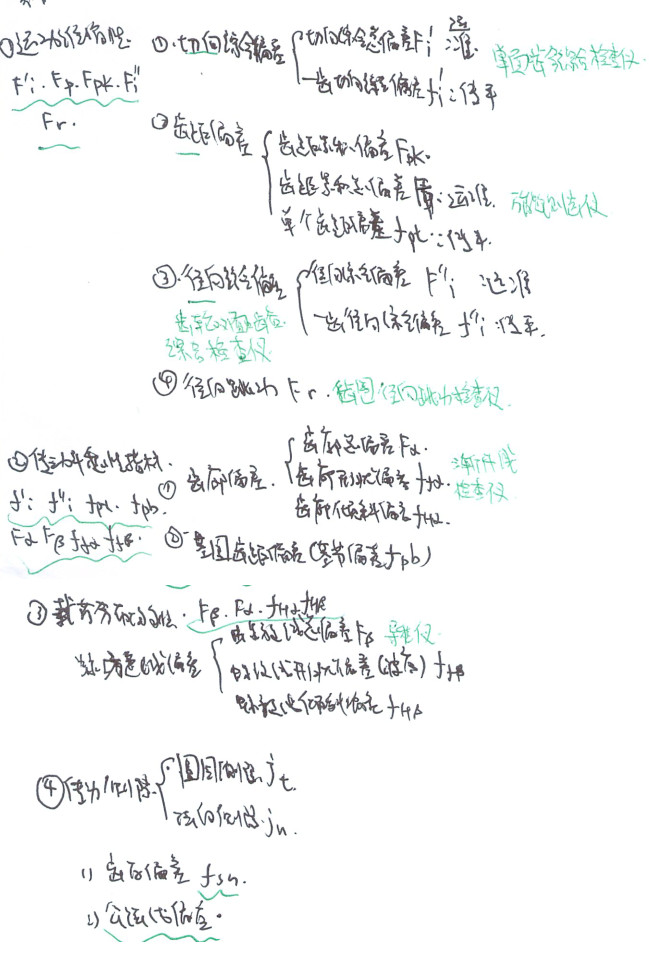 ①运动准确性
F'i. Fp. Fpk. Fi''
Fr.
① 切向综合偏差
切向综合总偏差Fi' 运准
一齿切向综合偏差fi':传平
单面齿轮综合检查仪
② 齿距偏差
齿距累积偏差Fpk.
齿距累积总偏差 :运准.
单个齿距偏差 fpt:传平.
万能测齿仪
③ 径向综合偏差
径向综合偏差 F''i :运准
一齿径向综合偏差 f''i:传平.
齿轮双面啮合
综合检查仪
④ 径向跳动 Fr. 齿圈径向跳动检查仪.
②传动平稳性指标.
f'i f''i fpt. fpb.
Fα Fβ ffα ffβ.
① 齿廓偏差.
齿廓总偏差Fα.
齿廓形状偏差ffα.
齿廓倾斜偏差fHα.
渐开线
检查仪
② 基圆齿距偏差(基节偏差fpb)
③ 载荷分布均匀性. Fβ. Fα. fHα fHβ
螺旋线偏差
螺旋线总偏差Fβ 导程仪
螺旋线形状偏差(波度) ffβ
螺旋线倾斜偏差 fHβ
④ 传动侧隙
圆周侧隙jt
法向侧隙jn.
1) 齿厚偏差 fsn.
2) 公法线偏差.